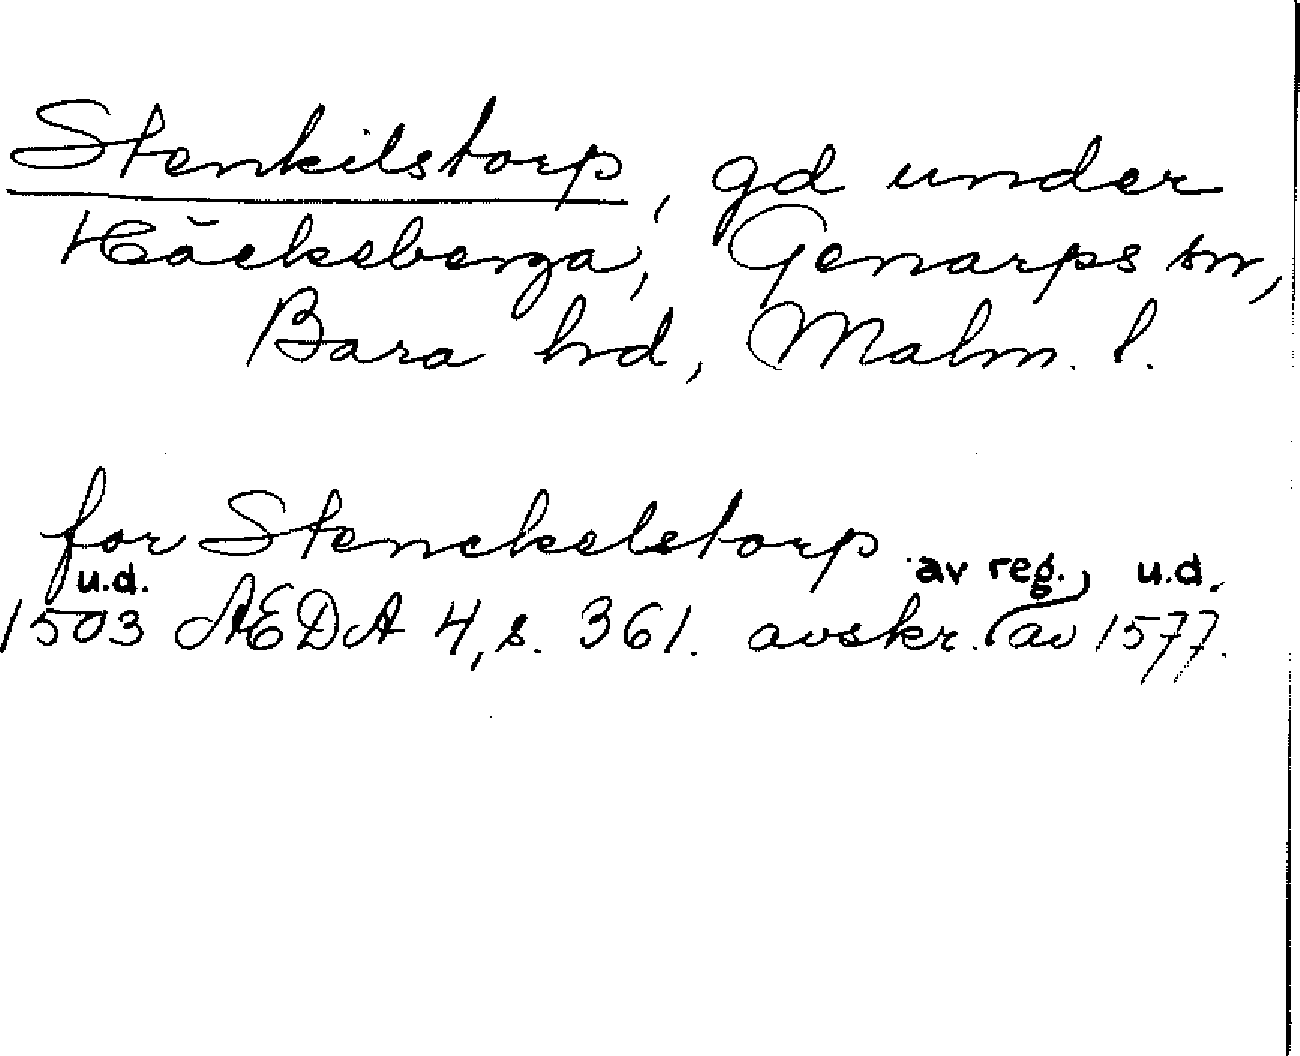 Stenkilstorp, gd under
Häckeberga, Genarps sn,
Bara hd, Malm. l.
for Stenckelstorp
u.d. av reg., u.d.
1503 ÆDA 4, s. 361. avskr. av 1577.